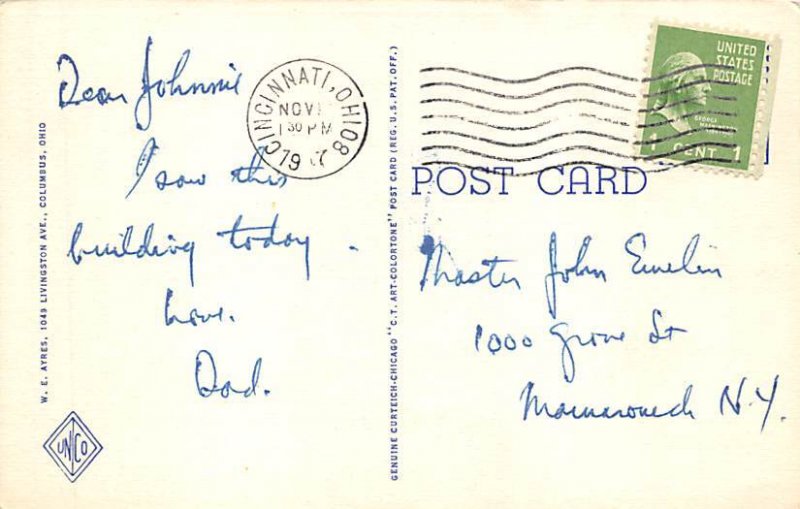 Dear Johnnie
I saw this
building today.
Love.
Dad.
CINCINNATI, OHIO 8
NOV
1 30 PM
19 7
UNITED
STATES
POSTAGE
GEORGE
WASHINGTON
1 CENT 1
POST CARD
Master John
1000 Grove St
Mamaroneck N.Y.
W. E. AYRES, 1049 LIVINGSTON AVE., COLUMBUS, OHIO
UNICO
GENUINE CURTEICH-CHICAGO "C. T. ART-COLORTONE" POST CARD (REG. U. S. PAT. OFF.)